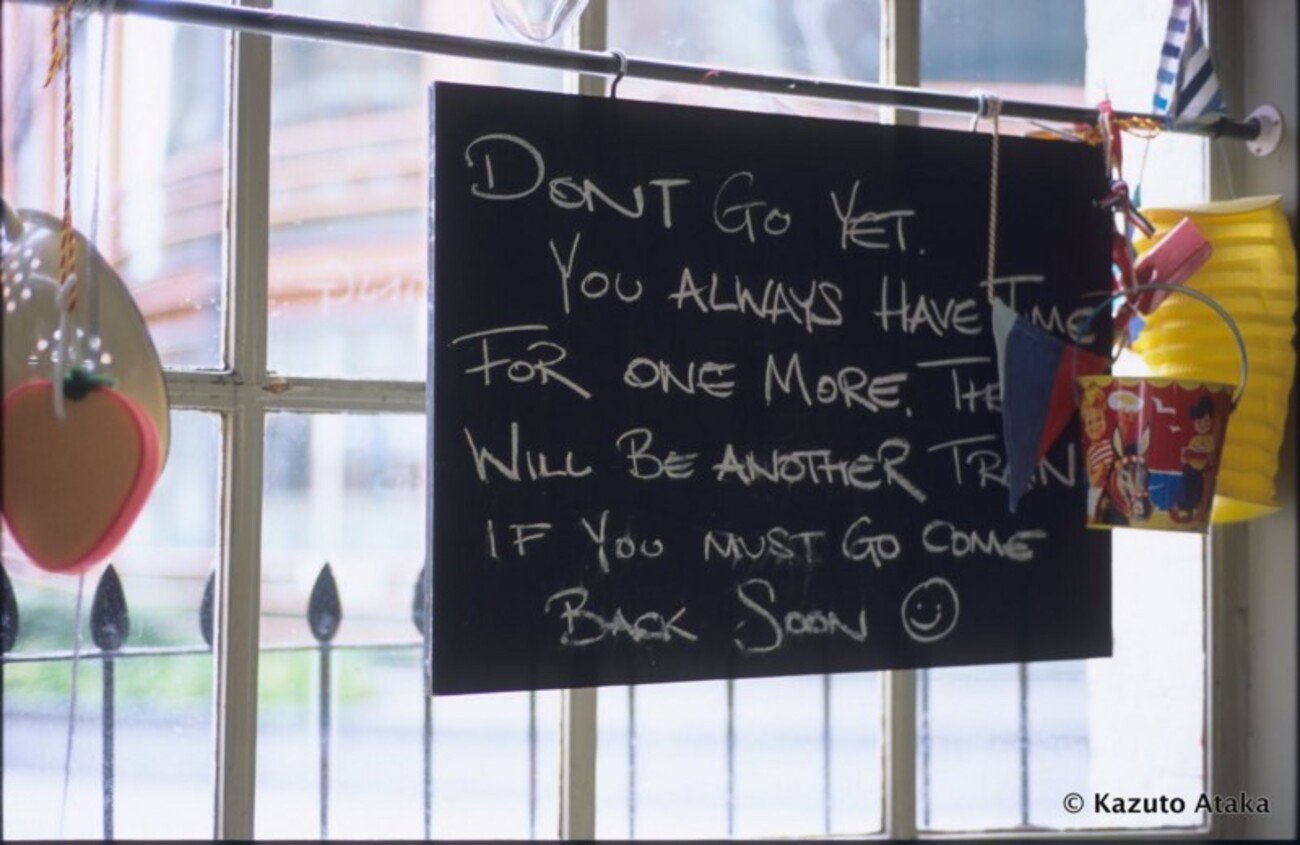 DONT GO YET.
YOU ALWAYS HAVE TIME
FOR ONE MORE. THE
WILL BE ANOTHER TRAIN
IF YOU MUST GO COME
BACK SOON
© Kazuto Ataka